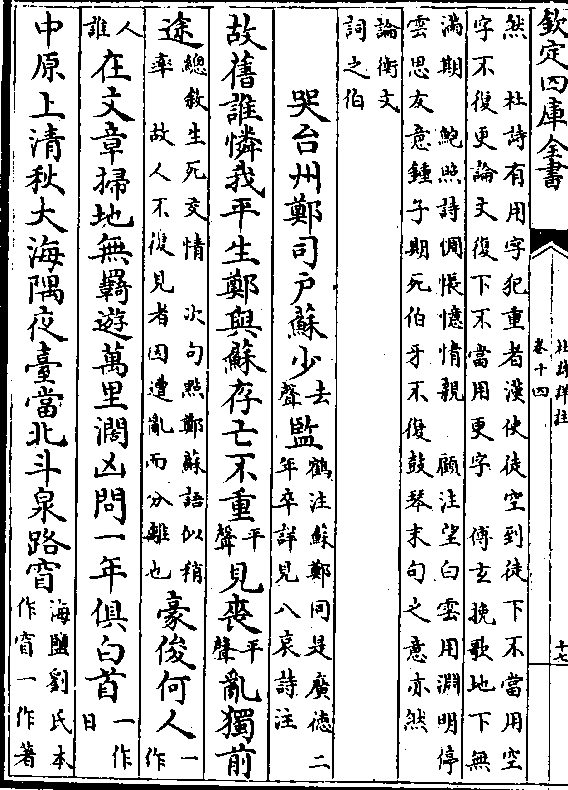 欽定四庫全書
杜詩詳注
卷十四
十七
然　杜詩有用字犯重者漢使徒空到徒下不當用空
字不復更論文復下不當用更字　傅玄挽歌地下無
滿期　鮑照詩惆悵憶情親　顧注望白雲用淵明停
雲思友意鍾子期死伯牙不復鼓琴末句之意亦然
論衡文
詞之伯
哭台州鄭司户蘇少去聲監鶴注蘇鄭同是廣徳二年卒詳見八哀詩注
故舊誰憐我平生鄭與蘇存亡不重平聲見喪平聲亂獨前
途總敘生死交情　次句點鄭蘇語似稍率　故人不復見者因遭亂而分離也豪俊何人一作
人誰在文章掃地無羈遊萬里濶凶問一年俱白首一作日
中原上清秋大海隅夜臺當北斗泉路窅海鹽劉氏本作窅一作著